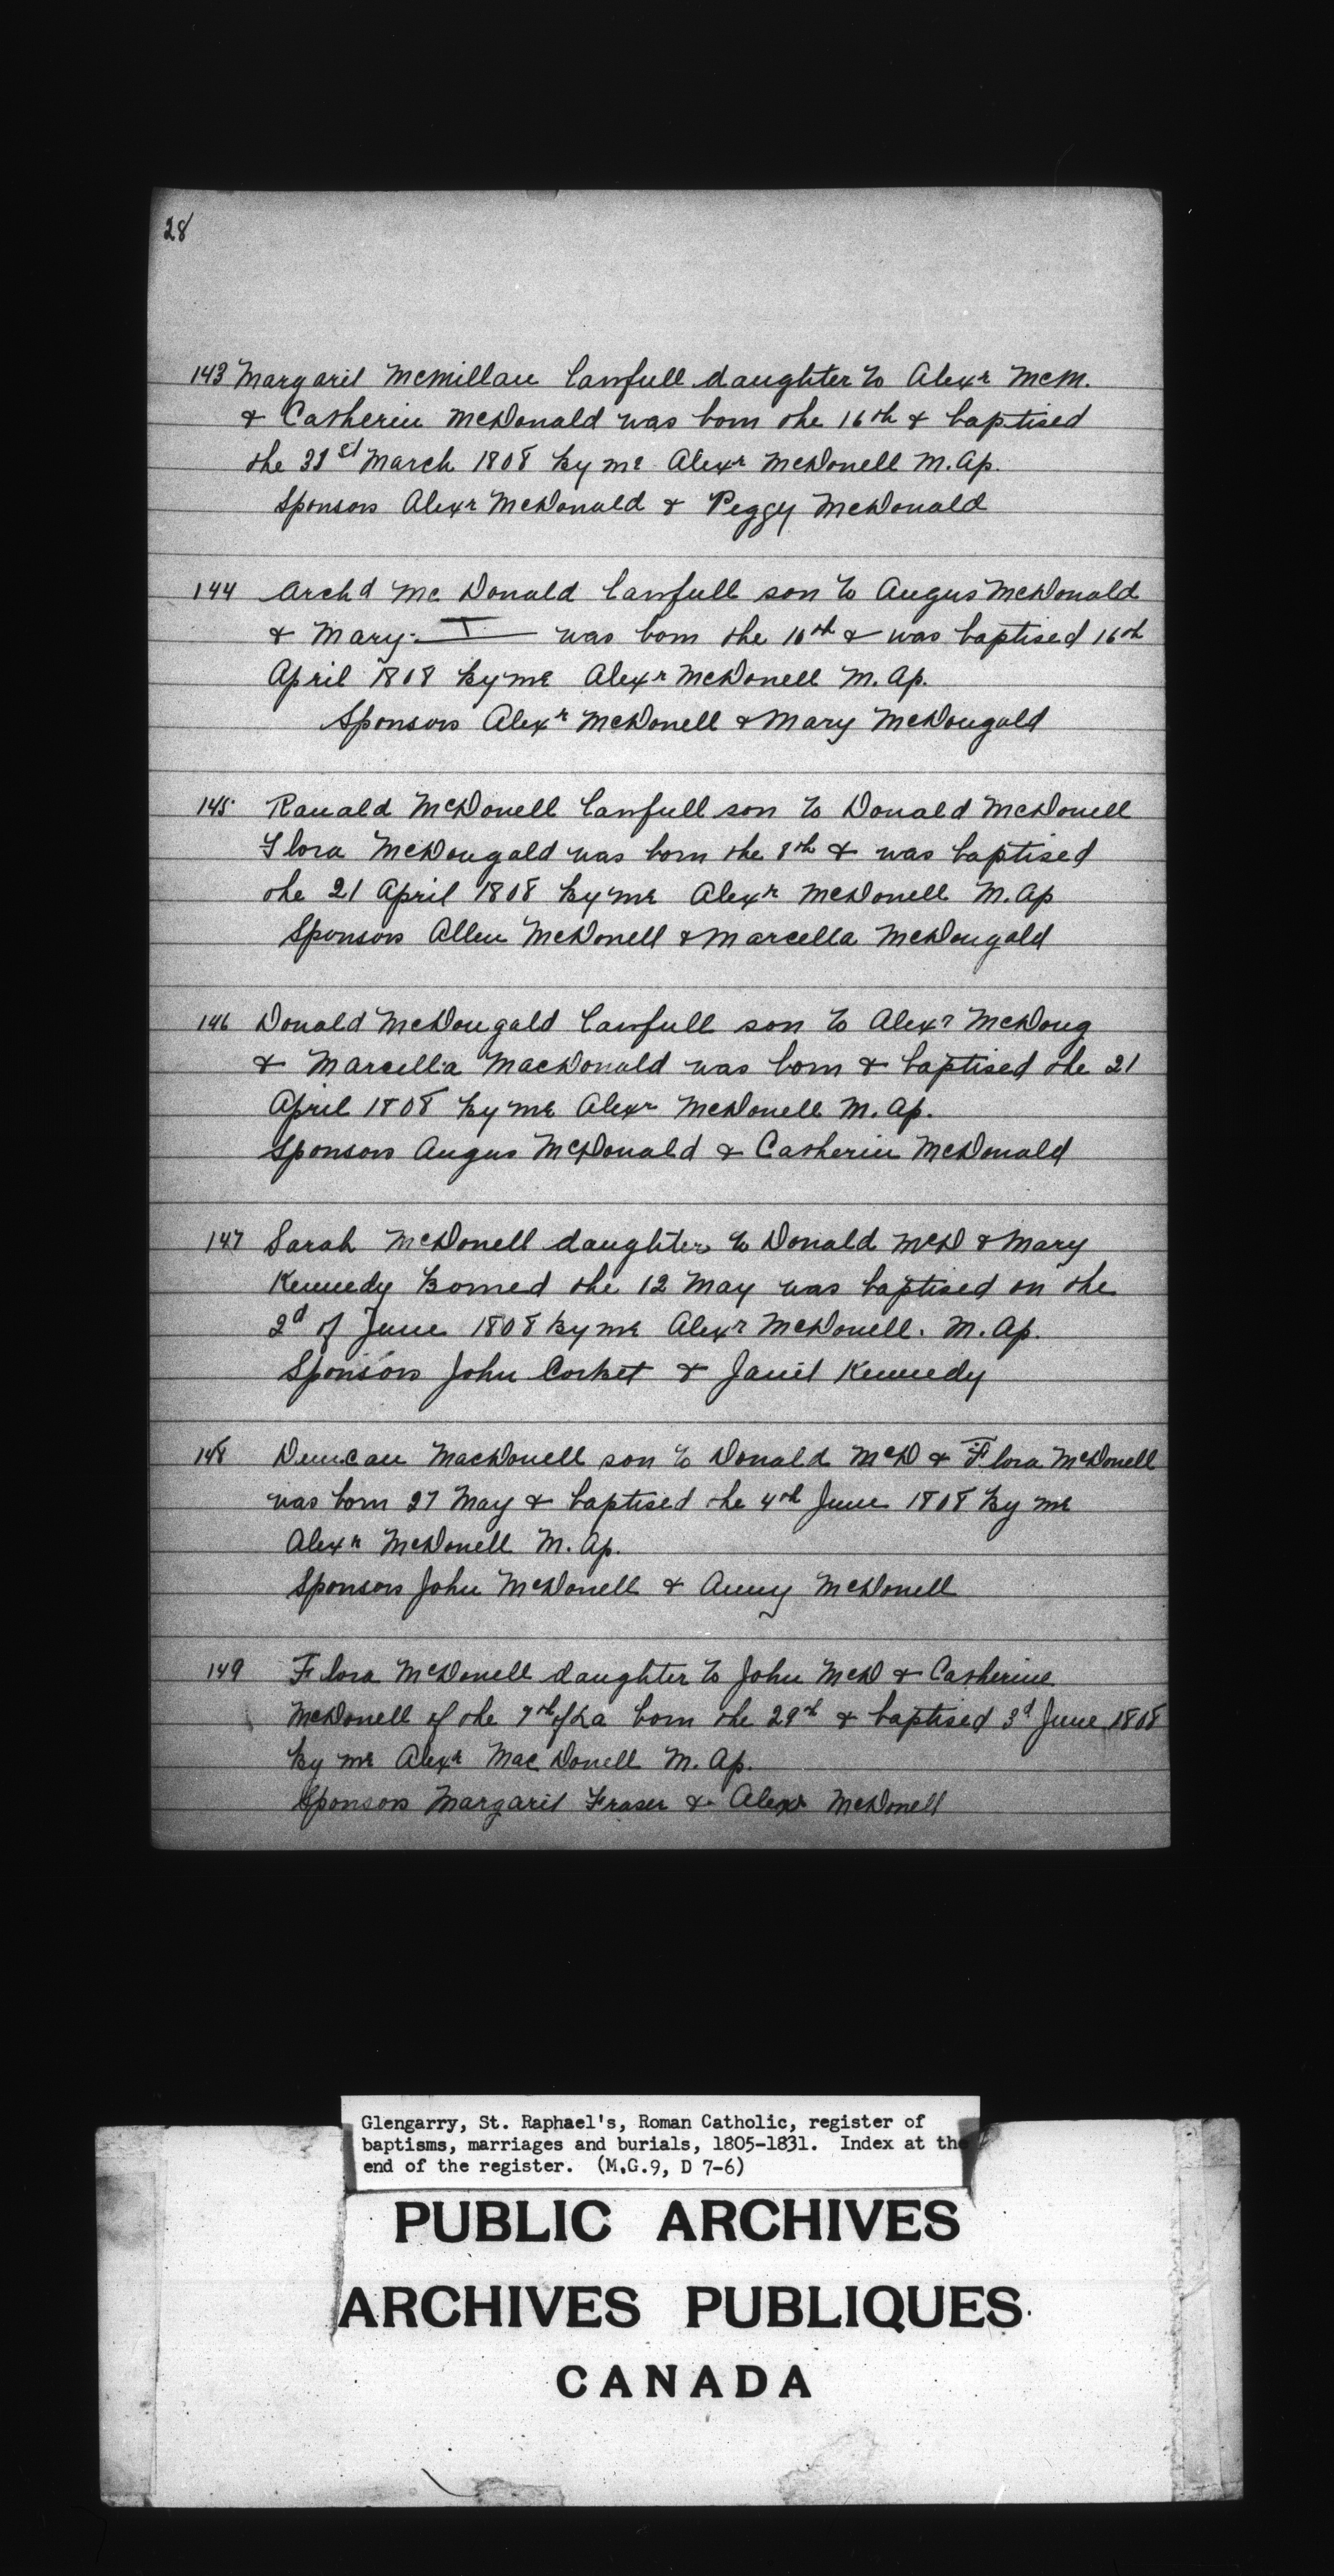 28
143 Margaret McMillan lawfull daughter to Alexr McM.
& Catherin McDonald was born the 16th & baptised
the 31st March 1808 By me Alexr McDonell M. Ap.
Sponsors Alexr McDonald & Peggy McDonald
144 Archd Mc Donald lawfull son to Angus McDonald
& Mary was born the 10th & was baptised 16th
April 1808 By me Alexr McDonell M. Ap.
Sponsors Alexr McDonell & Mary McDougald
145 Ranald McDonell lawfull son to Donald McDonell
Flora McDougald was born the 8th & was baptised
the 21 April 1808 By me Alexr McDonell M. Ap
Sponsors Allen McDonell & Marcella McDougald
146 Donald McDougald lawfull son to Alexr McDoug
& Marcella MacDonald was born & baptised the 21
April 1808 By me Alexr McDonell M. Ap.
Sponsors Angus McDonald & Catherin McDonald
147 Sarah McDonell daughter to Donald McD & Mary
Kennedy Borned the 12 May was baptised on the
2d of June 1808 By me Alexr McDonell. M. Ap.
Sponsors John Corbet & Janet Kennedy
148 Duncan MacDonell son to Donald McD & Flora McDonell
was born 27 May & baptised the 4th June 1808 By me
Alexr McDonell M. Ap.
Sponsors John McDonell & Anny McDonell
149 Flora McDonell daughter to John McD & Catherine
McDonell of the 7th of La born the 29th & baptised 3d June 1808
By me Alexr Mac Donell M. Ap.
Sponsors Margaret Fraser & Alexr McDonell
Glengarry, St. Raphael's, Roman Catholic, register of
baptisms, marriages and burials, 1805-1831. Index at the
end of the register. (M.G.9, D 7-6)
PUBLIC ARCHIVES
ARCHIVES PUBLIQUES
CANADA